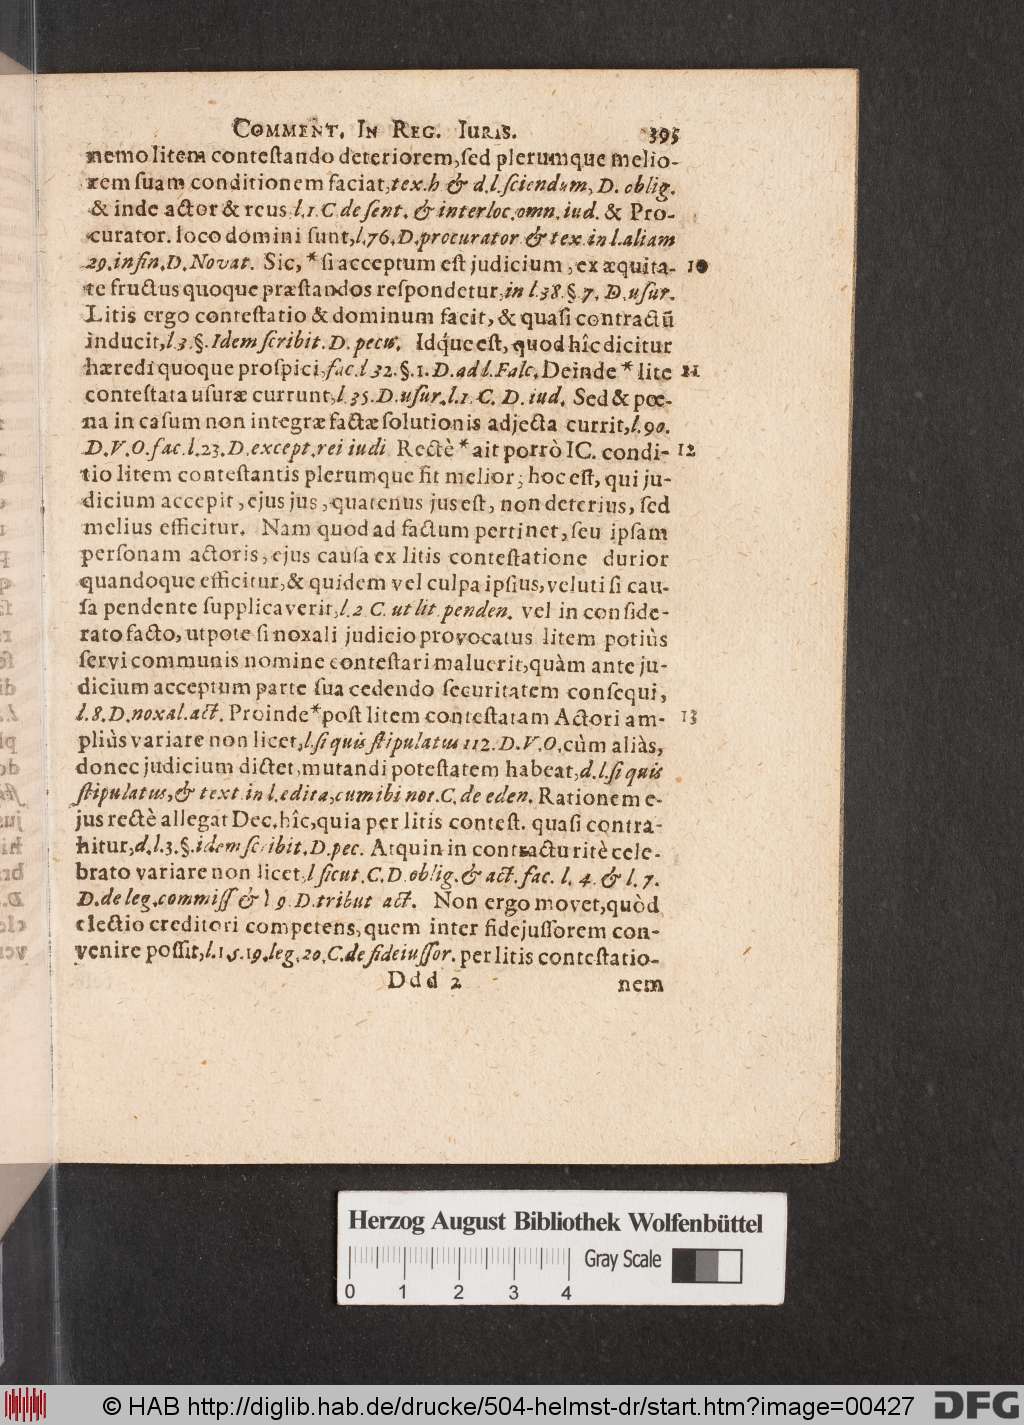 COMMENT. IN REG. IURIS. 395
nemo litem contestando deteriorem, sed plerumque melio-
rem suam conditionem faciat, tex. h & d. l. sciendum, D. oblig.
& inde actor & reus l. 1 C de sent. & interloc. omn. iud. & Pro-
curator. loco domini sunt, l. 76. D. procurator & tex in l. aliam
29. in fin. D. Novat. Sic, * si acceptum est judicium, ex æquita- 10
te fructus quoque præstandos respondetur, in l. 38. §. 7. D. usur.
Litis ergo contestatio & dominum facit, & quasi contractū
inducit, l. 3. §. Idem scribit. D. pecu. Idq́ue est, quod hîc dicitur
hæredi quoque prospici, fac. l 32. §. 1. D. ad l. Falc. Deinde * lite 11
contestata usuræ currunt, l. 35. D. usur. l. 1. C. D. iud. Sed & poe-
na in casum non integræ factæ solutionis adjecta currit, l. 90.
D. V. O. fac. l. 23. D. except. rei iudi Rectè * ait porrò IC. condi- 12
tio litem contestantis plerumque fit melior; hoc est, qui ju-
dicium accepit, ejus jus, quatenus jus est, non deterius, sed
melius efficitur. Nam quod ad factum pertinet, seu ipsam
personam actoris, ejus causa ex litis contestatione durior
quandoque efficitur, & quidem vel culpa ipsius, veluti si cau-
sa pendente supplicaverit, l. 2 C. ut lit. penden. vel in conside-
rato facto, utpote si noxali judicio provocatus litem potiùs
servi communis nomine contestari maluerit, quàm ante ju-
dicium acceptum parte sua cedendo securitatem consequi,
l. 8. D. noxal. act. Proinde * post litem contestatam Actori am- 13
pliùs variare non licet, l. si quis stipulatus 112. D. V. O, cùm aliàs,
donec judicium dictet, mutandi potestatem habeat, d. l. si quis
stipulatus, & text in l. edita, cum ibi not. C. de eden. Rationem e-
jus rectè allegat Dec. hîc, quia per litis contest. quasi contra-
hitur, d. l. 3. §. idem scribit. D. pec. Atqui in contractu ritè cele-
brato variare non licet, l sicut. C. D. oblig. & act. fac. l. 4. & l. 7.
D. de leg. commiss & l 9. D. tribut act. Non ergo movet, quòd
electio creditori competens, quem inter fidejussorem con-
venire possit, l. 15. 19. leg. 20. C. de fideiussor. per litis contestatio-
Ddd 2 nem
Herzog August Bibliothek Wolfenbüttel
Gray Scale
0 1 2 3 4
© HAB http://diglib.hab.de/drucke/504-helmst-dr/start.htm?image=00427
DFG